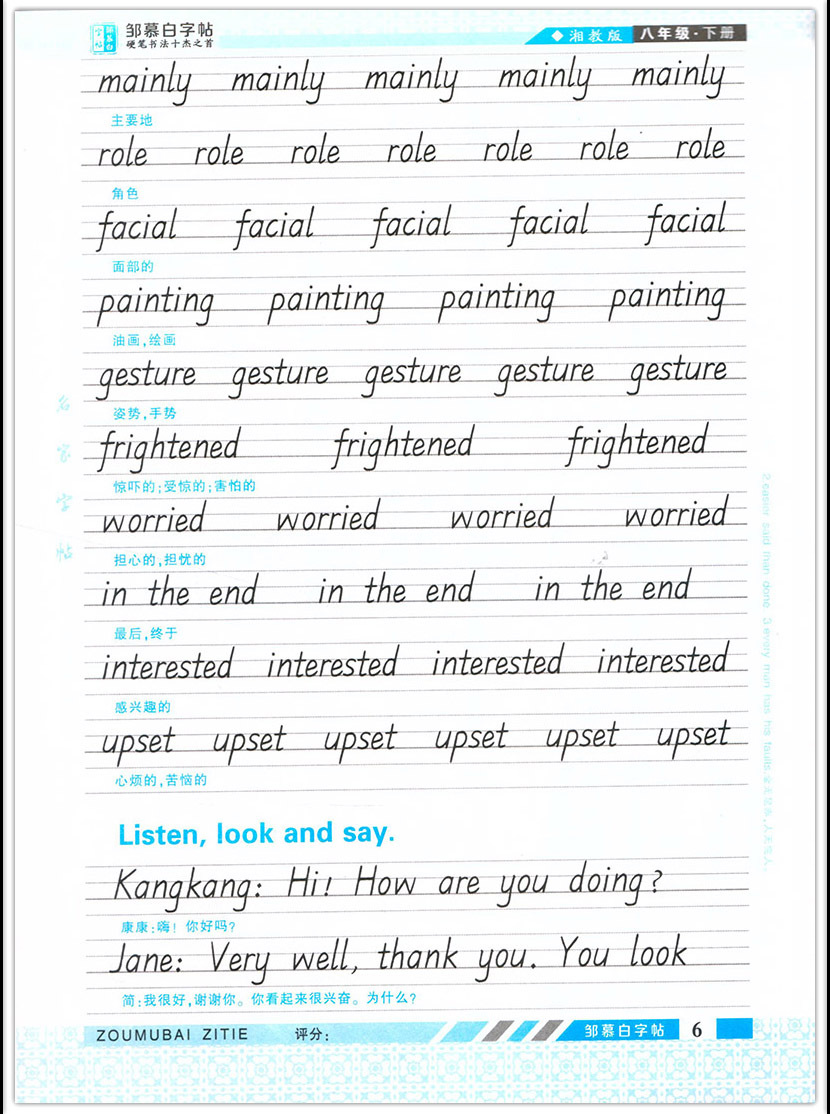 邹慕白字帖
硬笔书法十杰之首
湘教版 八年级·下册
mainly mainly mainly mainly mainly
主要地
role role role role role role role
角色
facial facial facial facial facial
面部的
painting painting painting painting
油画,绘画
gesture gesture gesture gesture gesture
姿势,手势
frightened frightened frightened
惊吓的;受惊的;害怕的
worried worried worried worried
担心的,担忧的
in the end in the end in the end
最后,终于
interested interested interested interested
感兴趣的
upset upset upset upset upset upset
心烦的,苦恼的
Listen, look and say.
Kangkang: Hi! How are you doing?
康康:嗨! 你好吗?
Jane: Very well, thank you. You look
简:我很好,谢谢你。你看起来很兴奋。为什么?
名家字帖
2.easier said than done. 3.every man has his faults.
ZOUMUBAI ZITIE 评分: 邹慕白字帖 6